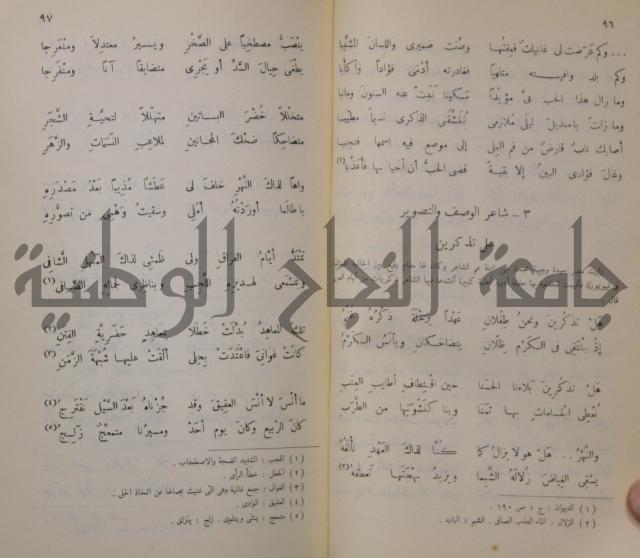 ٩٦
... وكم عَرَضت لى غانياتٌ فعِفتُها وصُنت ضميرى واللسانَ الشبا
وكم بلد وافيته متلهيا فغادرته أدمَى فؤاداً وأكأبا
وما زال هذا الحب فىَّ مؤبّداً مَسكينا كَبَت عنه السنون ومانبا
وما زلتَ يامنديل ليلَى مُلازمى تُنَشِّقُنى الذكرى نسيماً مطيّبا
أصابك نابٌ قارضٌ من فم البِلى إلى موضع فيه اسمها فتجنبا
وغال فؤادى البينُ إلا بقيةً قضى الحبُّ أن أحيا بها فأُعذّبا(١)
٣ ــ شاعر الوصف والتصوير
هل تذكرين
هَلْ تذكرينَ ونحنُ طِفْلانِ عَهْداً بزَحْلَةَ ذِكرُهُ غُنْمُ
إذْ يلتقِى فى الكرْمِ ظِلّانِ يتضاحكانِ ويأنَسُ الكرْمُ
هَلْ تذكرينَ بلاءنا الحسَنا حين اقتطافِ أطايبِ العِنَبِ
نُعْطِى ابتساماتٍ بها ثمَنا وبنا كنَشْوَتِها من الطَرَبِ
والنهْرُ .. هَلْ هو لا يزالُ كما كُنَّا لذاكَ العهدِ نألفُهُ
يسْقِى الغِياضَ زُلالَهُ الشَّبِما ويزيدُ بهجَتَها تعطّفُهُ(٢)
(١) الديوان : ج ١ ص ١٩٠ .
(٢) الزلال : الماء العذب الصافى . الشبم : البارد .
٩٧
ينْصَبُّ مصطخِباً على الصَّخْرِ ويسيرُ معتدِلاً ومُنْفَرِجا
يطْغَى حِيالَ السَّدِّ أو يجْرِى متضايقاً آناً ومُنفرِجا
متخلّلاً خُضْرَ البساتين متهلّلاً لتحيَّةِ الشَّجَرِ
متضاحكاً ضحْكَ المجانينِ لملاعبِ النّسَمَاتِ والزَّهَرِ
واهاً لذاكَ النَّهْرِ خلّفَ لى عَطَشاً مُذيباً بَعْدَ مَصْدَرِهِ
يا طالما أوردْتُهُ أمَلى وسقيتُ وَهْمِى من تصوُّرِهِ
تمتَدُّ أيامُ الفراقِ ولى ظَمئى لذاكَ المنْهَلِ الشَّافِى
وبمسْمَعى لهديرِهِ اللّجِبِ وبناظِرى لجمالِهِ الصَّافى(١)
تلكَ المعاهِدُ بُدِّلتْ خَطَلا بمعاهدٍ حَضَرِيَّةِ الفِتَنِ(٢)
كانتْ غوانِىَ فاغتدَتْ بحِلىً ألقتْ عليها شُبْهَةَ الزَّمَنِ(٣)
ما أنسَ لا أنْسَ العقيقَ وقد جُزْناهُ بعْدَ السَّيْلِ نفْتَرِجُ(٤)
كان الربيعَ وكانَ يومَ أحَدْ ومسيرُنا متمعِّجٌ زَلِجُ(٥)
(١) اللجب : الشديد الضجة والاصطخاب .
(٢) الخطل : خطأ الرأى .
(٣) الغوانى : جمع غانية وهى التى غنيت بجمالها عن اتخاذ الحلى .
(٤) العقيق : الوادى .
(٥) متمعج : ينثنى ويتلوى . زلج : ينزلق .
جامعة النجاح الوطنية